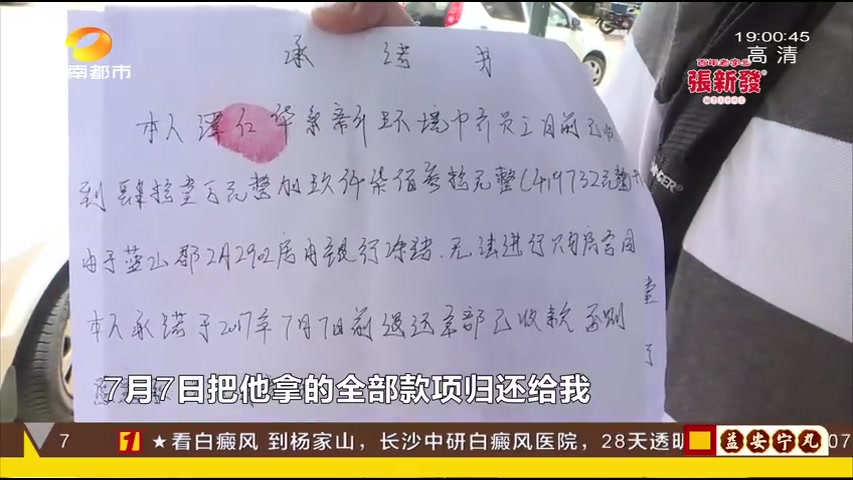 19:00:45
高清
南都市
百年老字号
張新發
承诺书
本人谭仁华系新外环境中介员三月前已收
到肆拾壹万元整加玖仟柒佰叁拾元整(419732元整)
由于蓝山郡2月2902房由银行冻结.无法进行购房合同
本人承诺于2017年7月7日前退还全部已收款 否则
7月7日把他拿的全部款项归还给我
7
★看白癜风 到杨家山，长沙中研白癜风医院，28天透明
益安宁丸
07